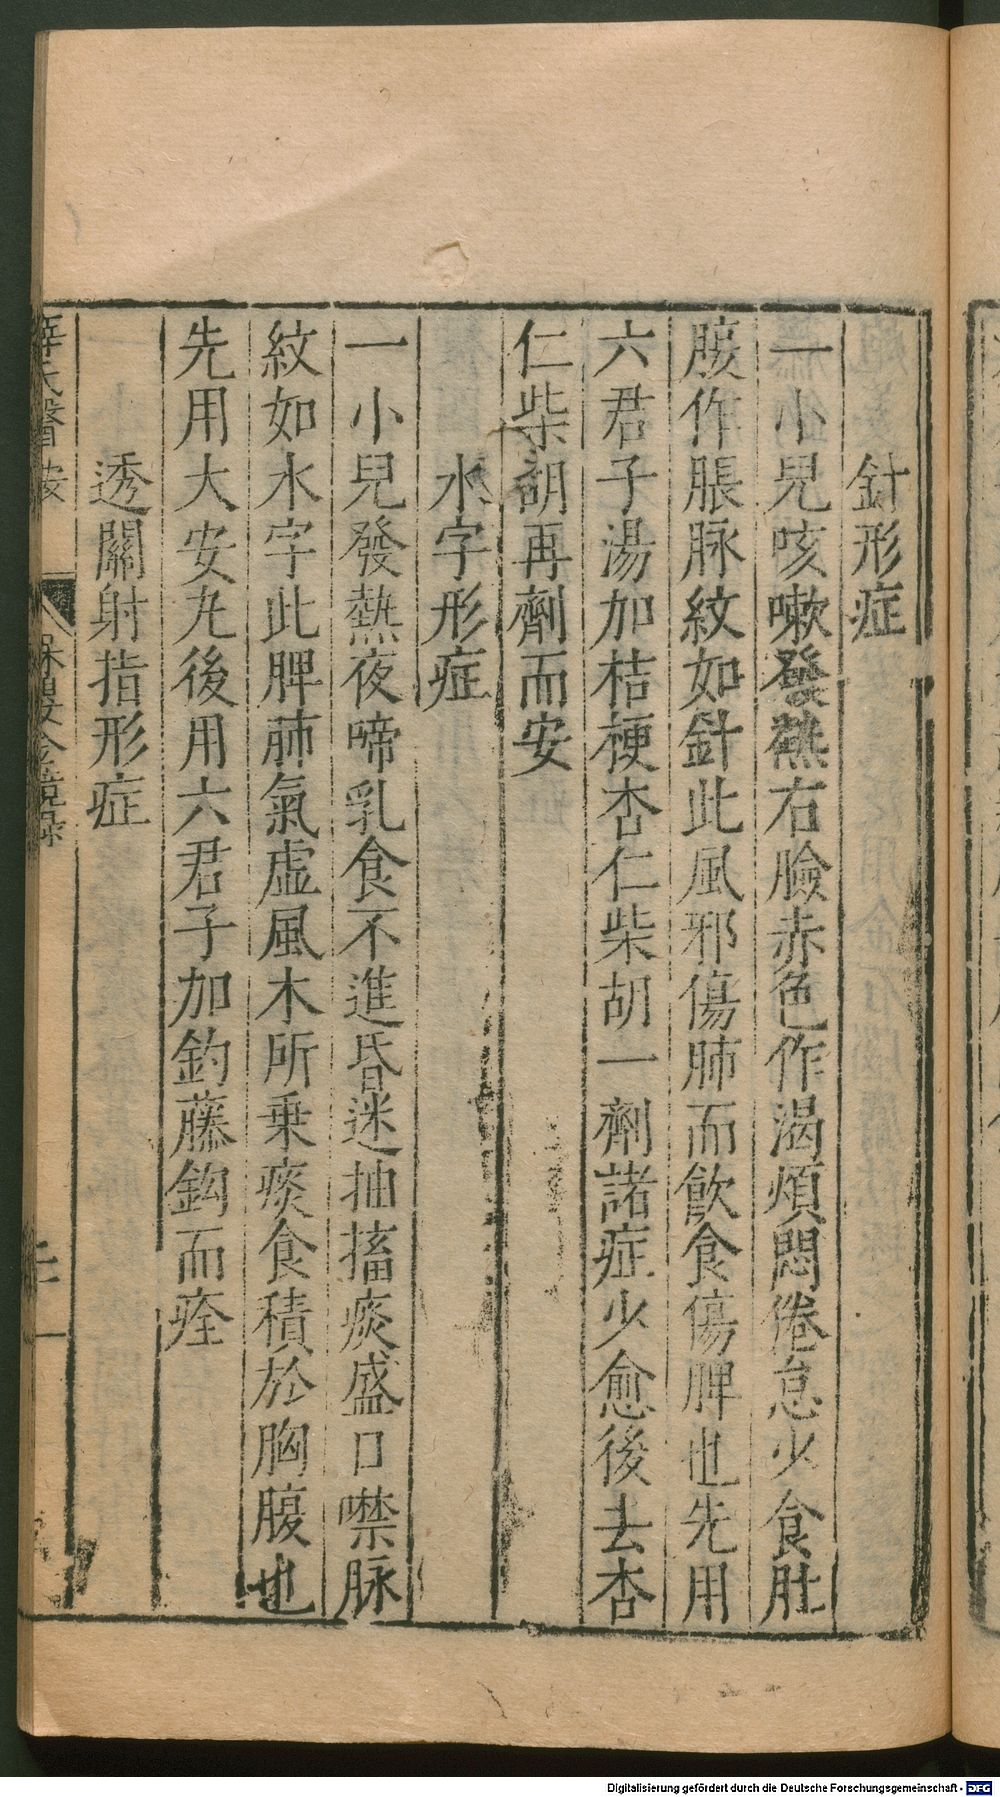 針形症
一小兒咳嗽發熱右臉赤色作渴煩悶倦怠少食肚
腹作脹脉紋如針此風邪傷肺而飲食傷脾也先用
六君子湯加桔梗杏仁柴胡一劑諸症少愈後去杏
仁柴胡再劑而安
水字形症
一小兒發熱夜啼乳食不進昏迷抽搐痰盛口噤脉
紋如水字此脾肺氣虛風木所乗痰食積於胸腹也
先用大安丸後用六君子加釣藤鈎而痊
透關射指形症
薛氏醫按
保嬰金鏡錄
Digitalisierung gefördert durch die Deutsche Forschungsgemeinschaft - DFG